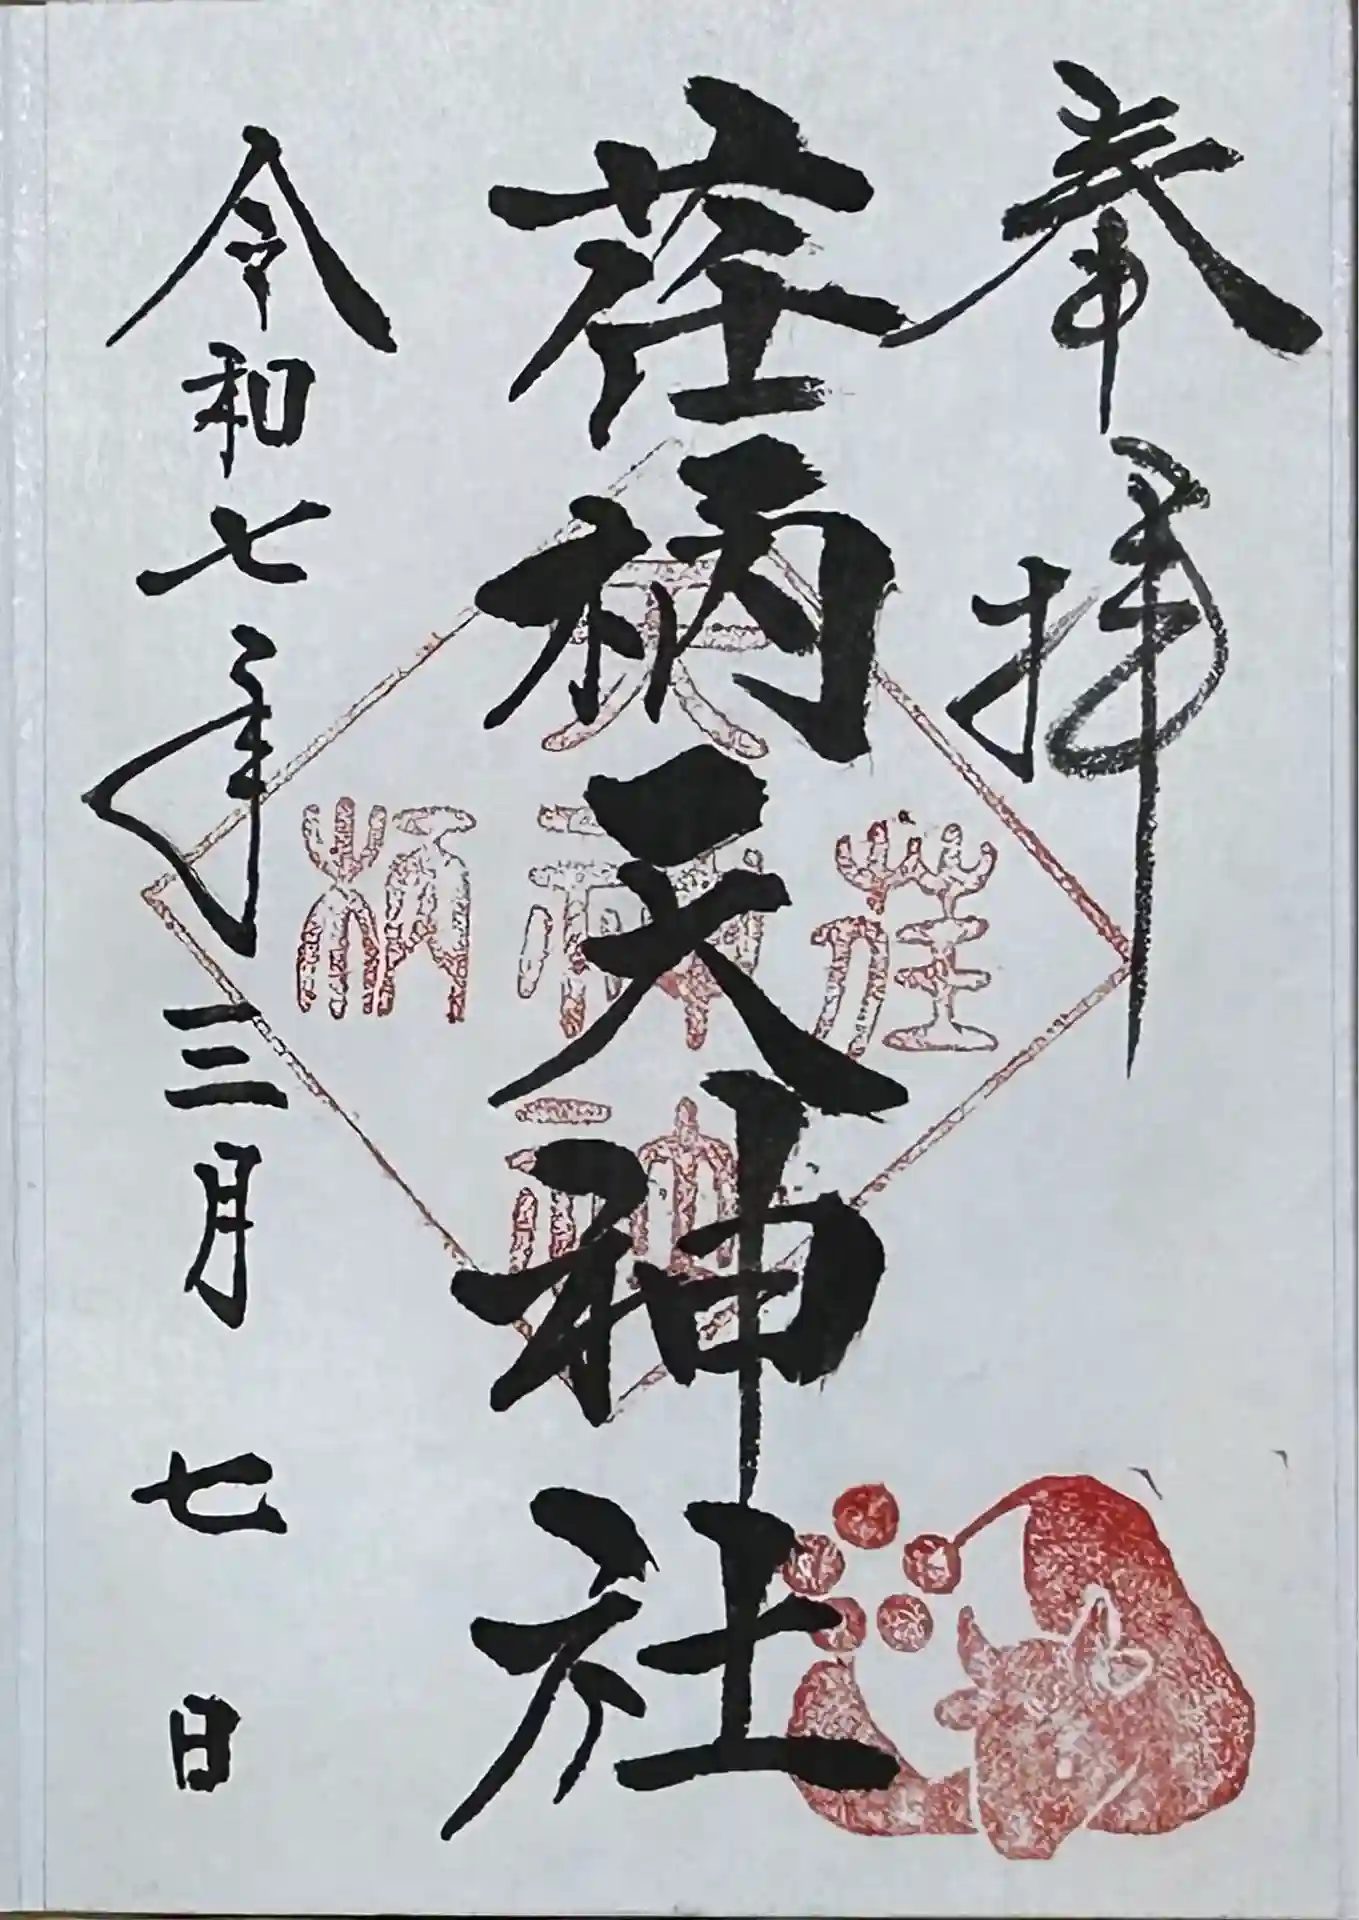 奉拝
荏柄天神社
令和七年三月七日
天
荏神柄
社